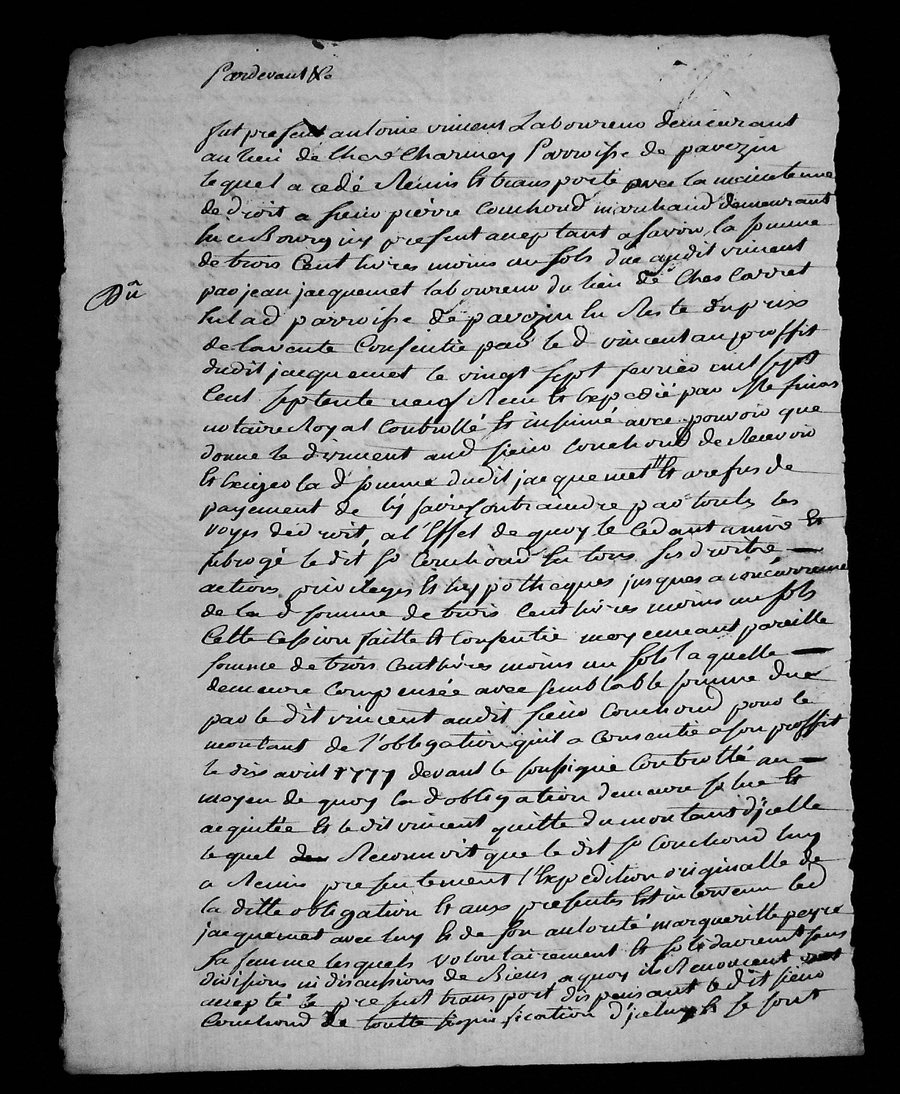 Pardevant &c
fut present antoine vincent Laboureur demeurant
au lieu de Chés Charmey Parroisse de pavezin
lequel a cedé Remis et transporté avec la maintenue
de droit a sieur pierre Couchoud marchand demeurant
en ce Bourg icy present aceptant a savoir la somme
de trois Cent livres moins un sols due audit vincent
Du
par jean jacquemet laboureur du lieu de Ches Carret
en lad parroisse de pavezin en Reste du prix
de la vente Consentie par le d vincent au proffit
dudit jacquemet le vingt sept fevrier mil sept
Cent septente neuf Reçu et Expedié par Me finas
notaire Royal Controllé et insinué avec pouvoir que
donne le d vincent aud sieur Couchoud de Recevoir
et Exiger la d somme dudit jacquemet et a refus de
payement de l'y faire Contraindre par toutes les
voyes de droit, a l'Effet de quoy le Cedant a mis et
subrogé le dit sr Couchoud en tous ses droits
actions, privileges et hypotheques jusques a concurrence
de la d somme de trois Cent livres moins un sols
Cette Cession faitte et Consentie moyennant pareille
somme de trois Cent livres moins un sols laquelle
demeure Compensée avec semblable somme due
par le dit vincent audit sieur Couchoud pour le
montant de l'obligation qu'il a Consentie a son proffit
le dix avril 1777 devant le soussigné Controllé au
moyen de quoy la d obligation demeure solue et
aquitée et le dit vincent quitte du montant d'jcelle
lequel Reconnoit que le dit sr Couchoud luy
a Remis presentement l'Expedition originalle de
la ditte obligation et aux presentes est intervenu led
jacquemet avec luy et de son autorité margueritte peyre
sa femme lesquels volontairement et solidairement sans
divisions ni discussions de Biens a quoy ils Renoncent ont
acepté le present transport dispensant le dit sieur
Couchoud de toutte signification d'jceluy et se sont